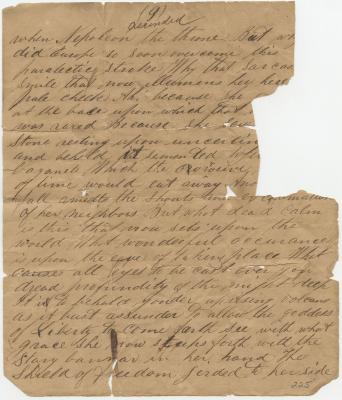 (9)
when Napoleon the throne. But
did Europe so soon overcome this
paralectic Stroke Why that Sarcas
Smile that now illumins her
pale cheeks Ah, because she
at the base upon which that
was rared Because she saw
Stone resting upon uncertin
and behold it semented with
which the
of time would eat away
fall amidst the shouts and
of her neighbors But what dead Calm
is this that now sets upon the
world What wonderful occurance
is upon the eave of taking place What
causes all eyes to be cast over your
dread profundity of the mighty deep
It is to behold yonder uprising volcano
as it burst assunder To allow the goddess
of Liberty to Come forth See with what
grace She now steps forth with the
Stary bannar in her hand The
Shield of freedom gerded to her side
225